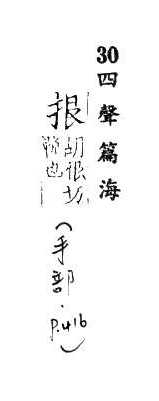 30四聲篇海
拫 胡很切
也
(手部.P.416)